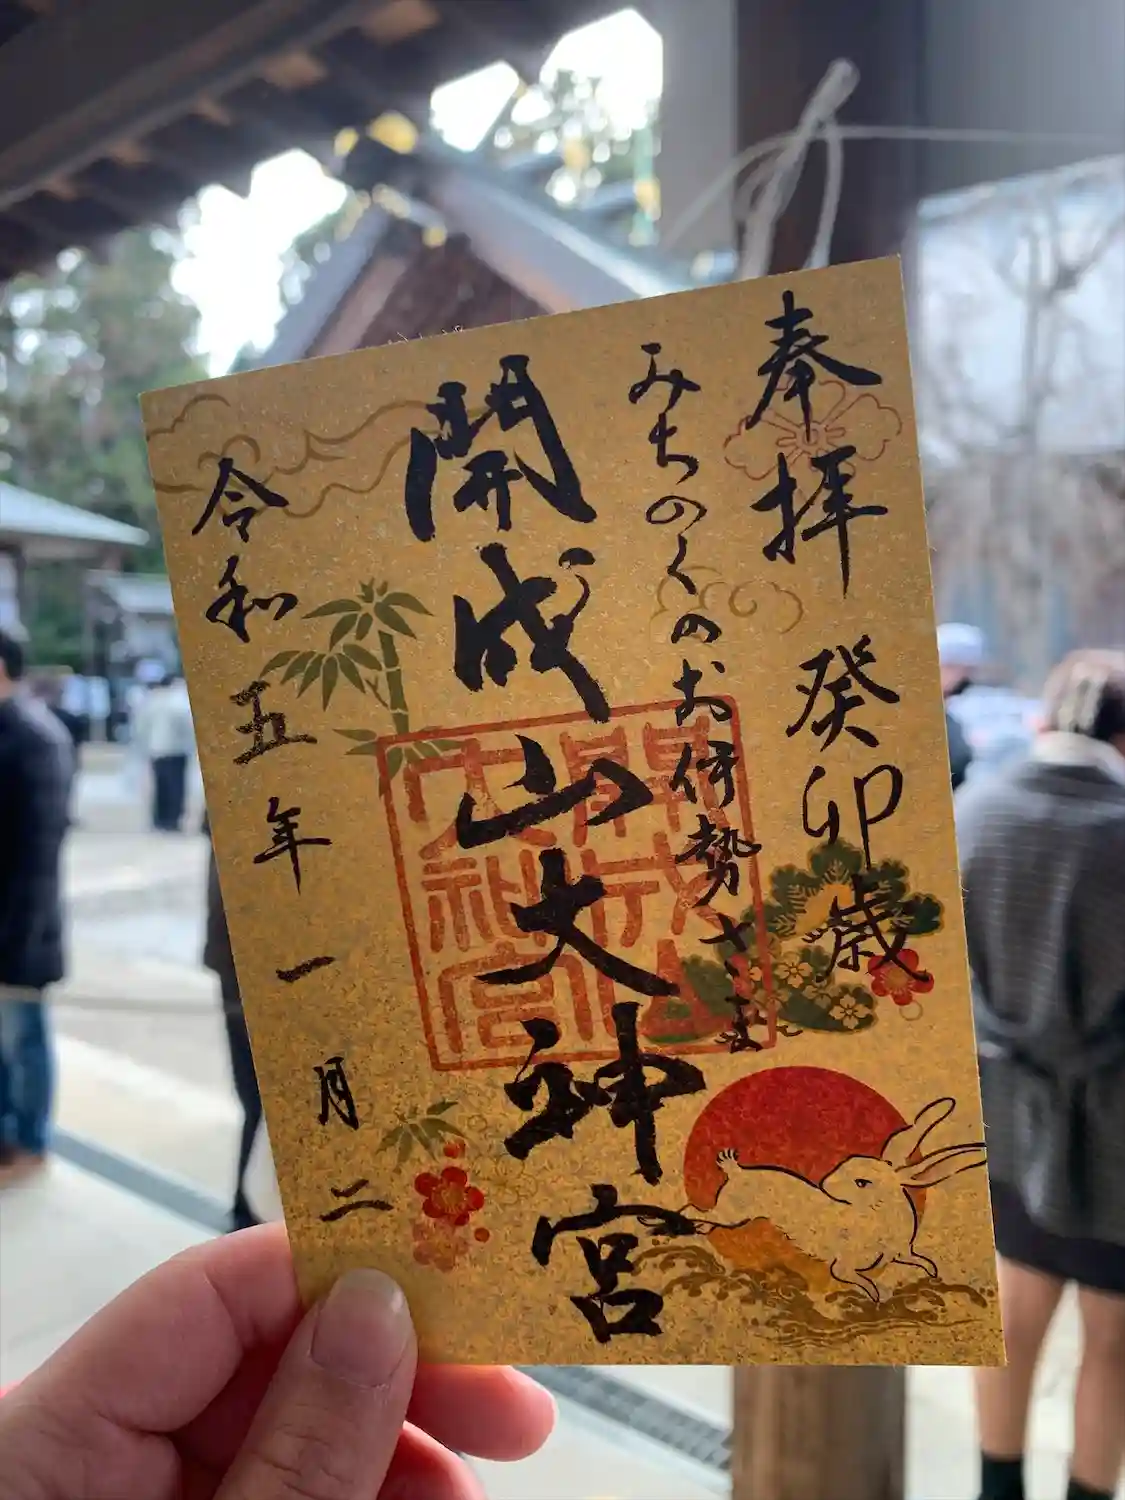 奉拝 癸卯歳
みちのくのお伊勢さま
開成山大神宮
開成山大神宮
令和五年一月二